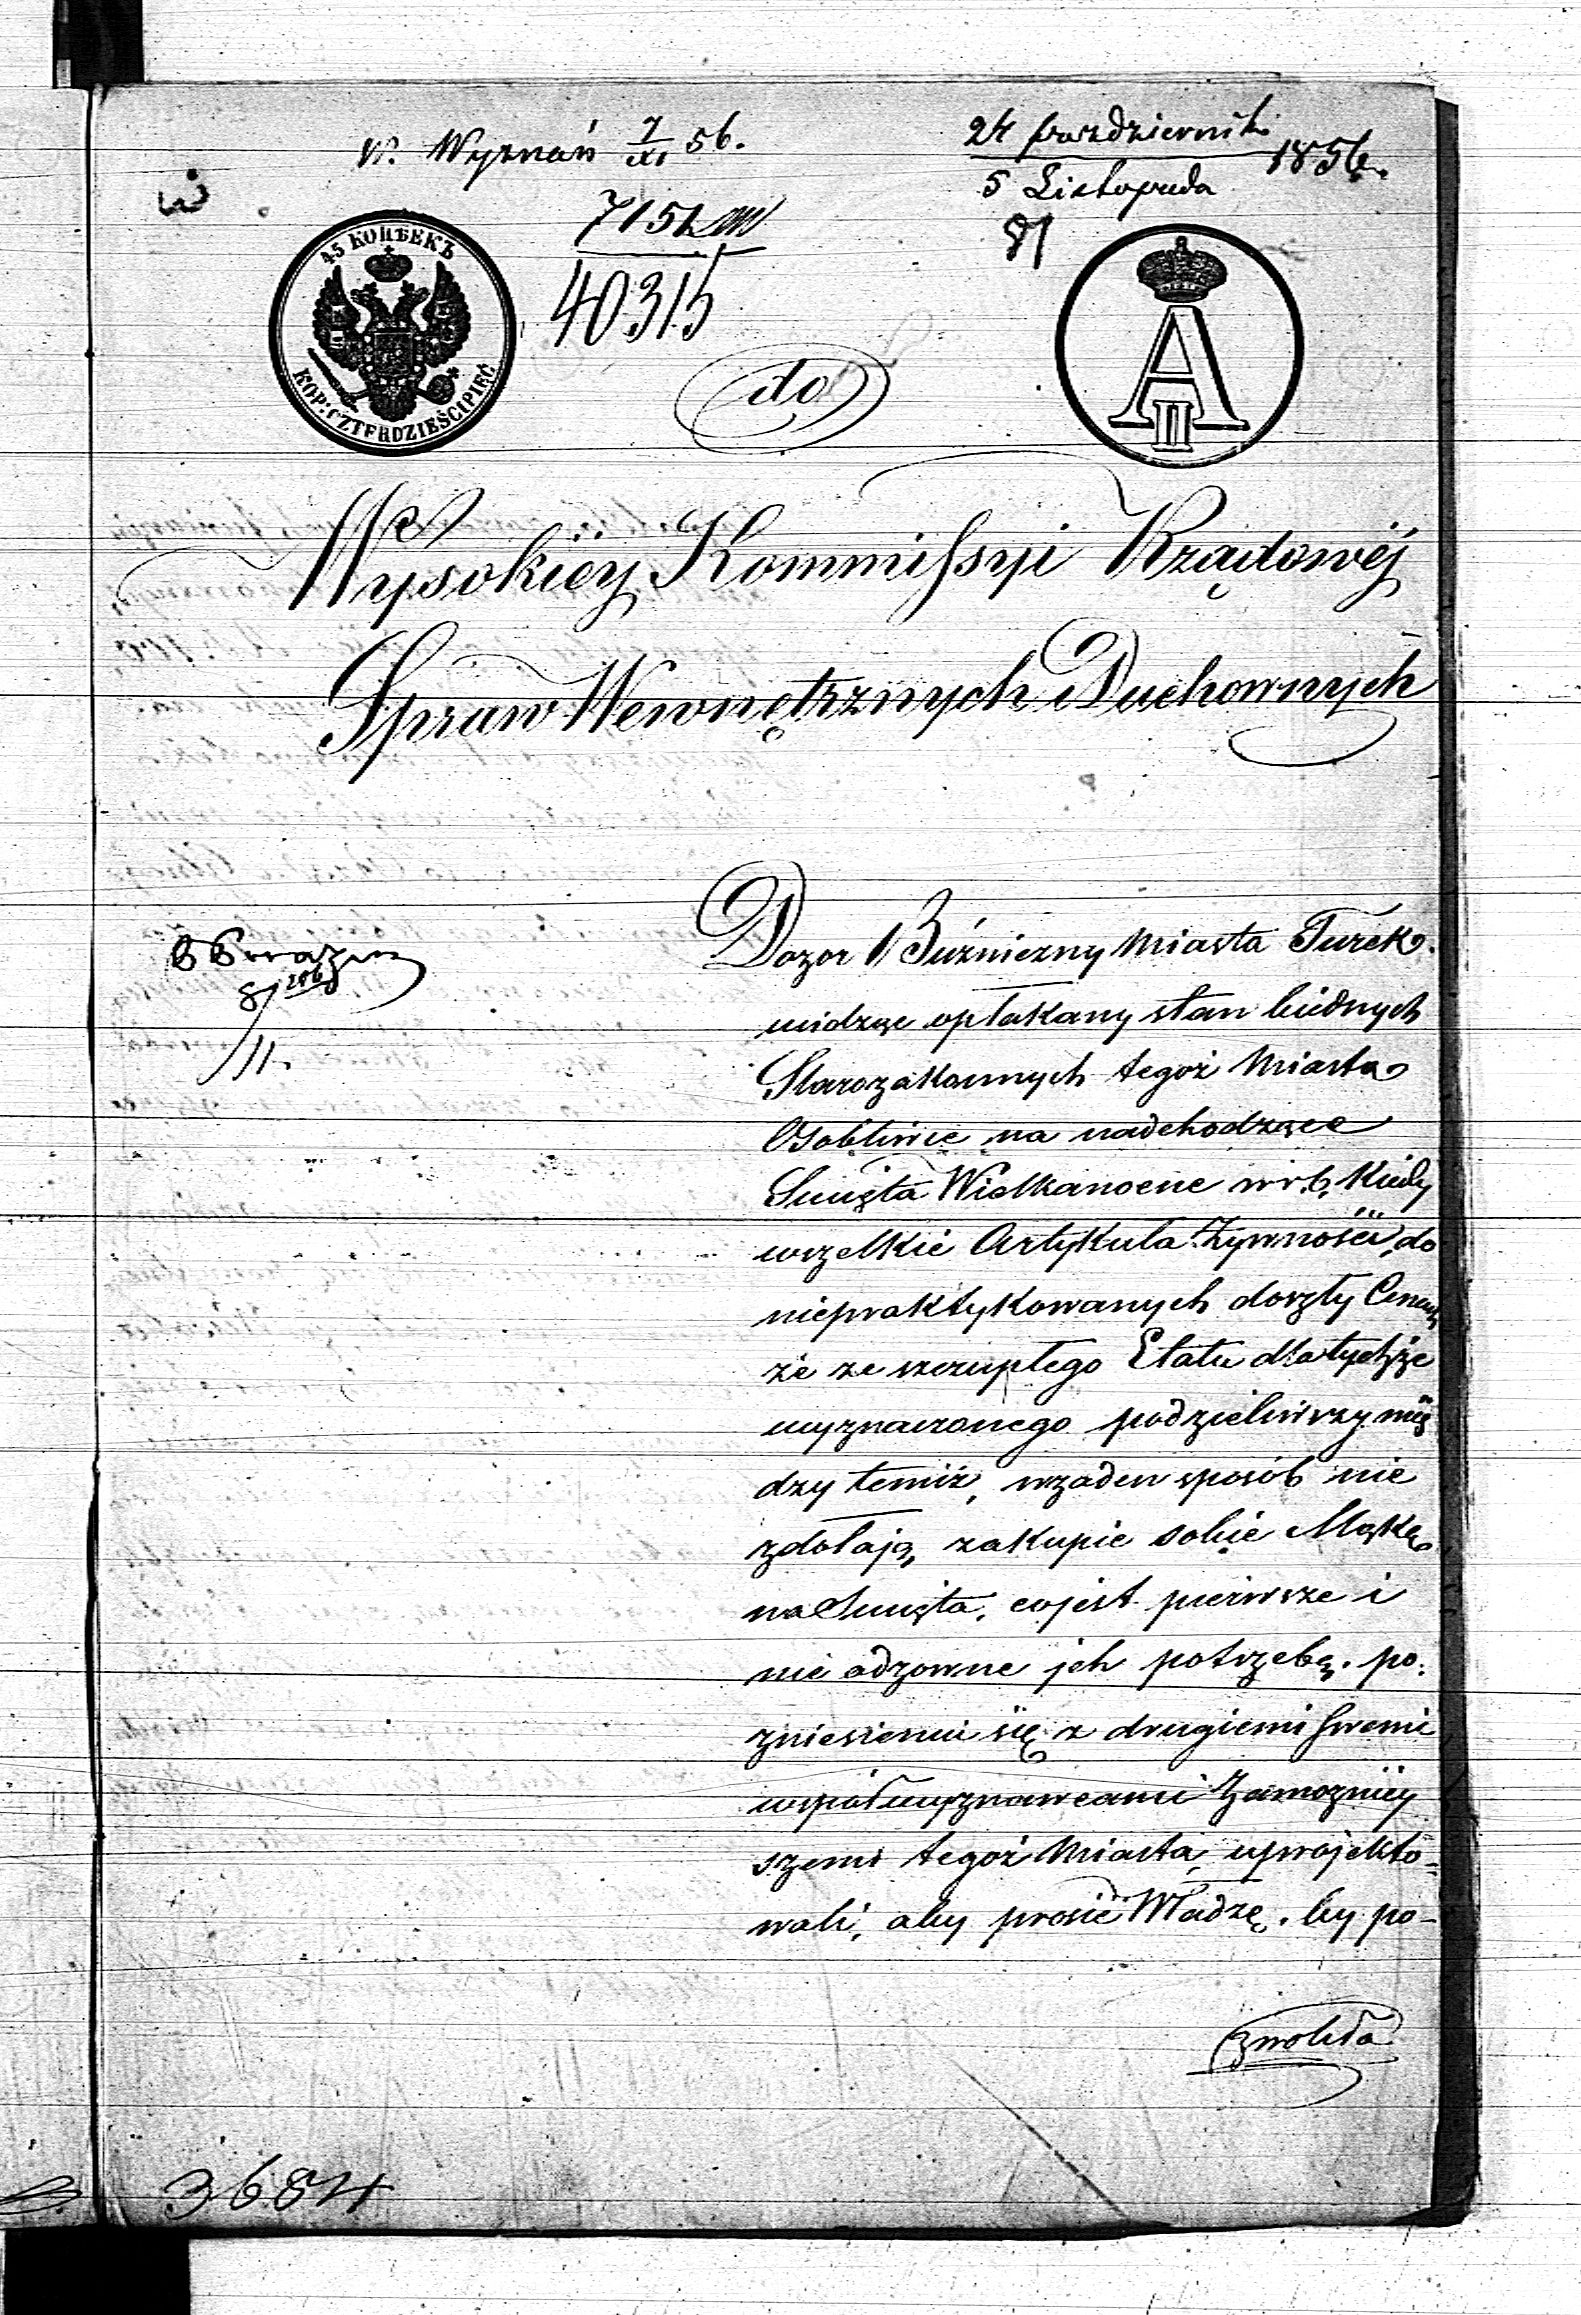 W. Wyznań 7/XI 56.
24 października
5 Listopada 1856 r.
7151
40315
81
45 КОПѢЕКЪ
KOP: CZTERDZIEŚCI PIĘĆ
A II
do
Wysokiéy Kommissyi Rządowéj
Spraw Wewnętrznych i Duchownych
8/11.
Dozor Bużniczny Miasta Turek
widząc opłakany stan biednych
Starozakonnych tegoż Miasta
Osobliwie na nadchodzące
Święta Wielkanocne w r. b. kiedy
wszelkie Artykuła Żywności do
niepraktykowanych doszły Cen
że ze szczupłego Etatu dla tychże
wyznaczonego podzieliwszy mię
dzy temiż, wżaden sposób nie
zdołają, zakupić sobie Mąkę
na Święta, co jest pierwsze i
nie odzowne jch potrzebą. po
zniesieniu się z drugiemi swemi
współwyznawcami Zamożniey
szemi tegoż Miasta, uprojekto=
wali, aby prosić Władzę, by po-
zwoliła
3684